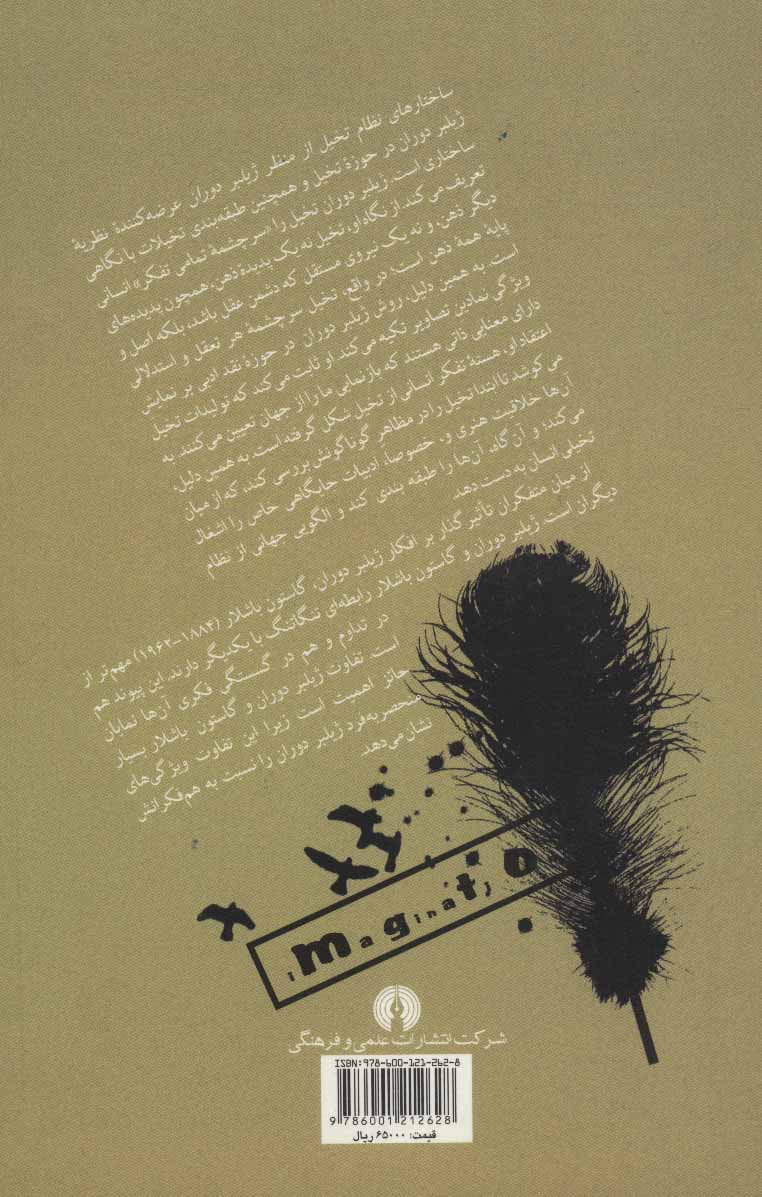 ساختارهای نظام تخیل از منظر ژیلبر دوران عرضه‌کنندهٔ نظریهٔ
ژیلبر دوران در حوزهٔ تخیل و همچنین طبقه‌بندی تخیلات با نگاهی
ساختاری است. ژیلبر دوران تخیل را «سرچشمهٔ تمامی تفکر» انسانی
تعریف می‌کند. از نگاه او، تخیل نه یک پدیدهٔ ذهن، همچون پدیده‌های
دیگر ذهن، و نه یک نیروی مستقل که دشمن عقل باشد، بلکه اصل و
پایهٔ همهٔ ذهن است؛ در واقع، تخیل سرچشمهٔ هر تعقل و استدلالی
است. به همین دلیل، روش ژیلبر دوران در حوزهٔ نقد ادبی بر نمایش
ویژگی نمادین تصاویر تکیه می‌کند. او ثابت می‌کند که تولیدات تخیل
دارای معنایی ذاتی هستند که بازنمایی ما را از جهان تعیین می‌کنند. به
اعتقاد او، هستهٔ تفکر انسانی از تخیل شکل گرفته است. به همین دلیل،
می‌کوشد تا ابتدا تخیل را در مظاهر گوناگونش بررسی کند، که از میان
آن‌ها خلاقیت هنری و، خصوصاً، ادبیات جایگاهی خاص را اشغال
می‌کند؛ و آن گاه، آن‌ها را طبقه بندی کند و الگویی جهانی از نظام
تخیلی انسان به دست دهد.
از میان متفکران تأثیرگذار بر افکار ژیلبر دوران، گاستون باشلار (۱۸۸۴-۱۹۶۲) مهم‌تر از
دیگران است. ژیلبر دوران و گاستون باشلار رابطه‌ای تنگاتنگ با یکدیگر دارند. این پیوند هم
در تداوم و هم در گسستگی فکری آن‌ها نمایان
است. تفاوت ژیلبر دوران و گاستون باشلار بسیار
حائز اهمیت است زیرا این تفاوت ویژگی‌های
منحصربه‌فرد ژیلبر دوران را نسبت به هم‌فکرانش
نشان می‌دهد.
imaginatio
شرکت انتشارات علمی و فرهنگی
ISBN: 978-600-121-262-8
9 786001 212628
قیمت: ۶۵۰۰۰ ریال